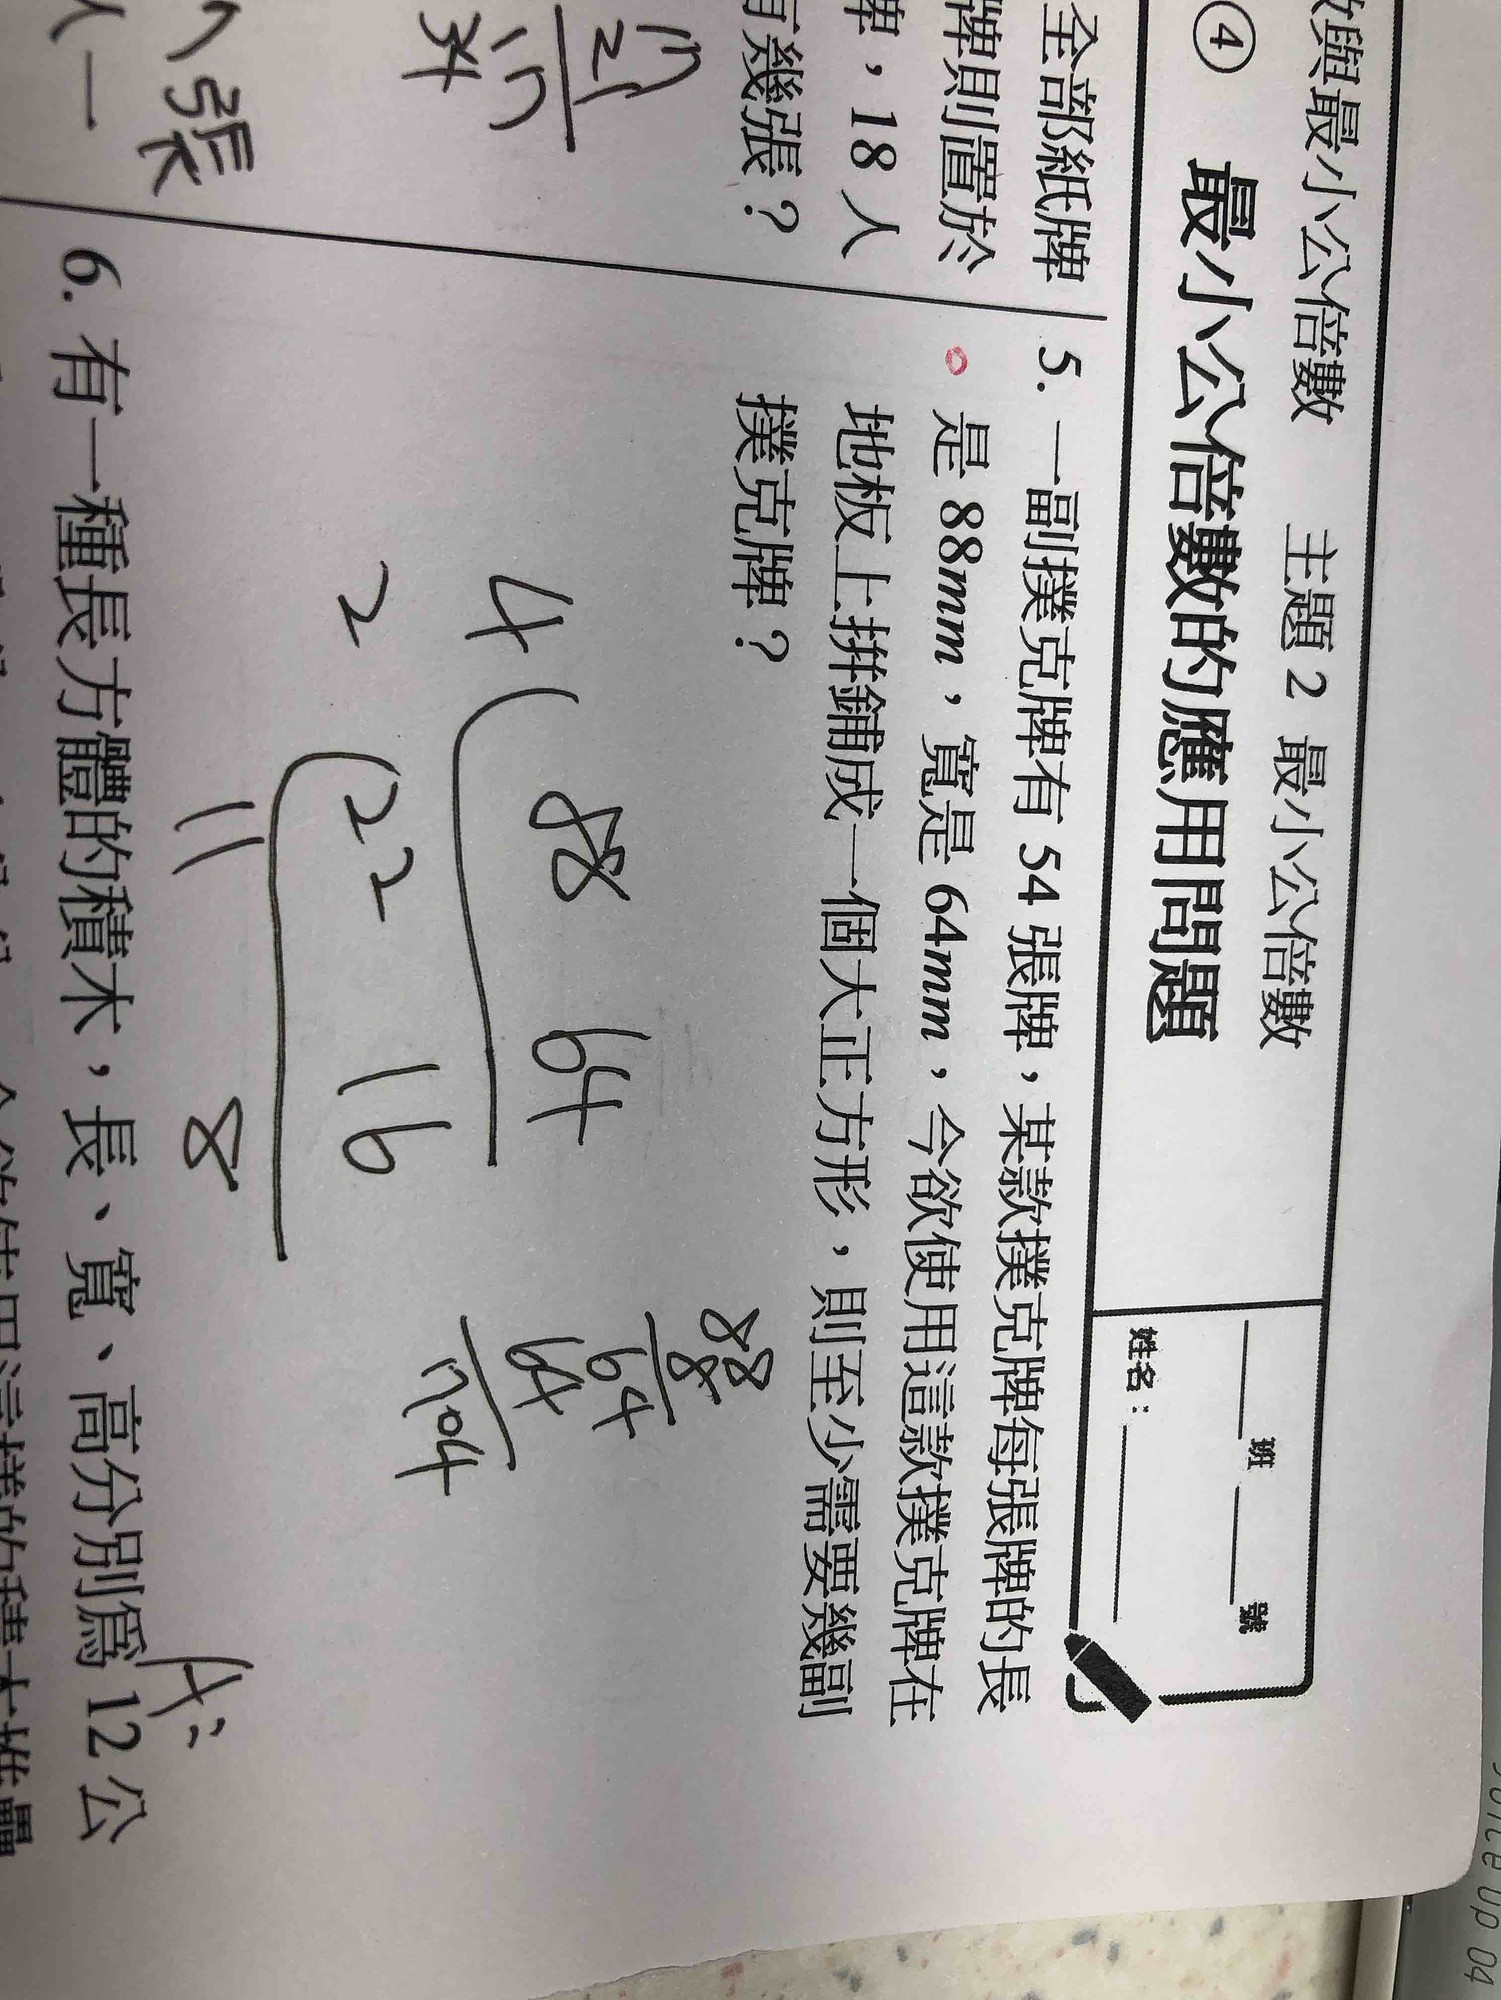 數與最小公倍數 主題 2 最小公倍數
④ 最小公倍數的應用問題
班 號
姓名：
全部紙牌
牌則置於
牌，18 人
有幾張？
17
2
17
34
張
人一
5. 一副撲克牌有 54 張牌，某款撲克牌每張牌的長
是 88mm，寬是 64mm，今欲使用這款撲克牌在
地板上拼鋪成一個大正方形，則至少需要幾副
撲克牌？
4 88 64
2 22 16
11 8
88
8
64
64
704
A:
6. 有一種長方體的積木，長、寬、高分別為 12 公